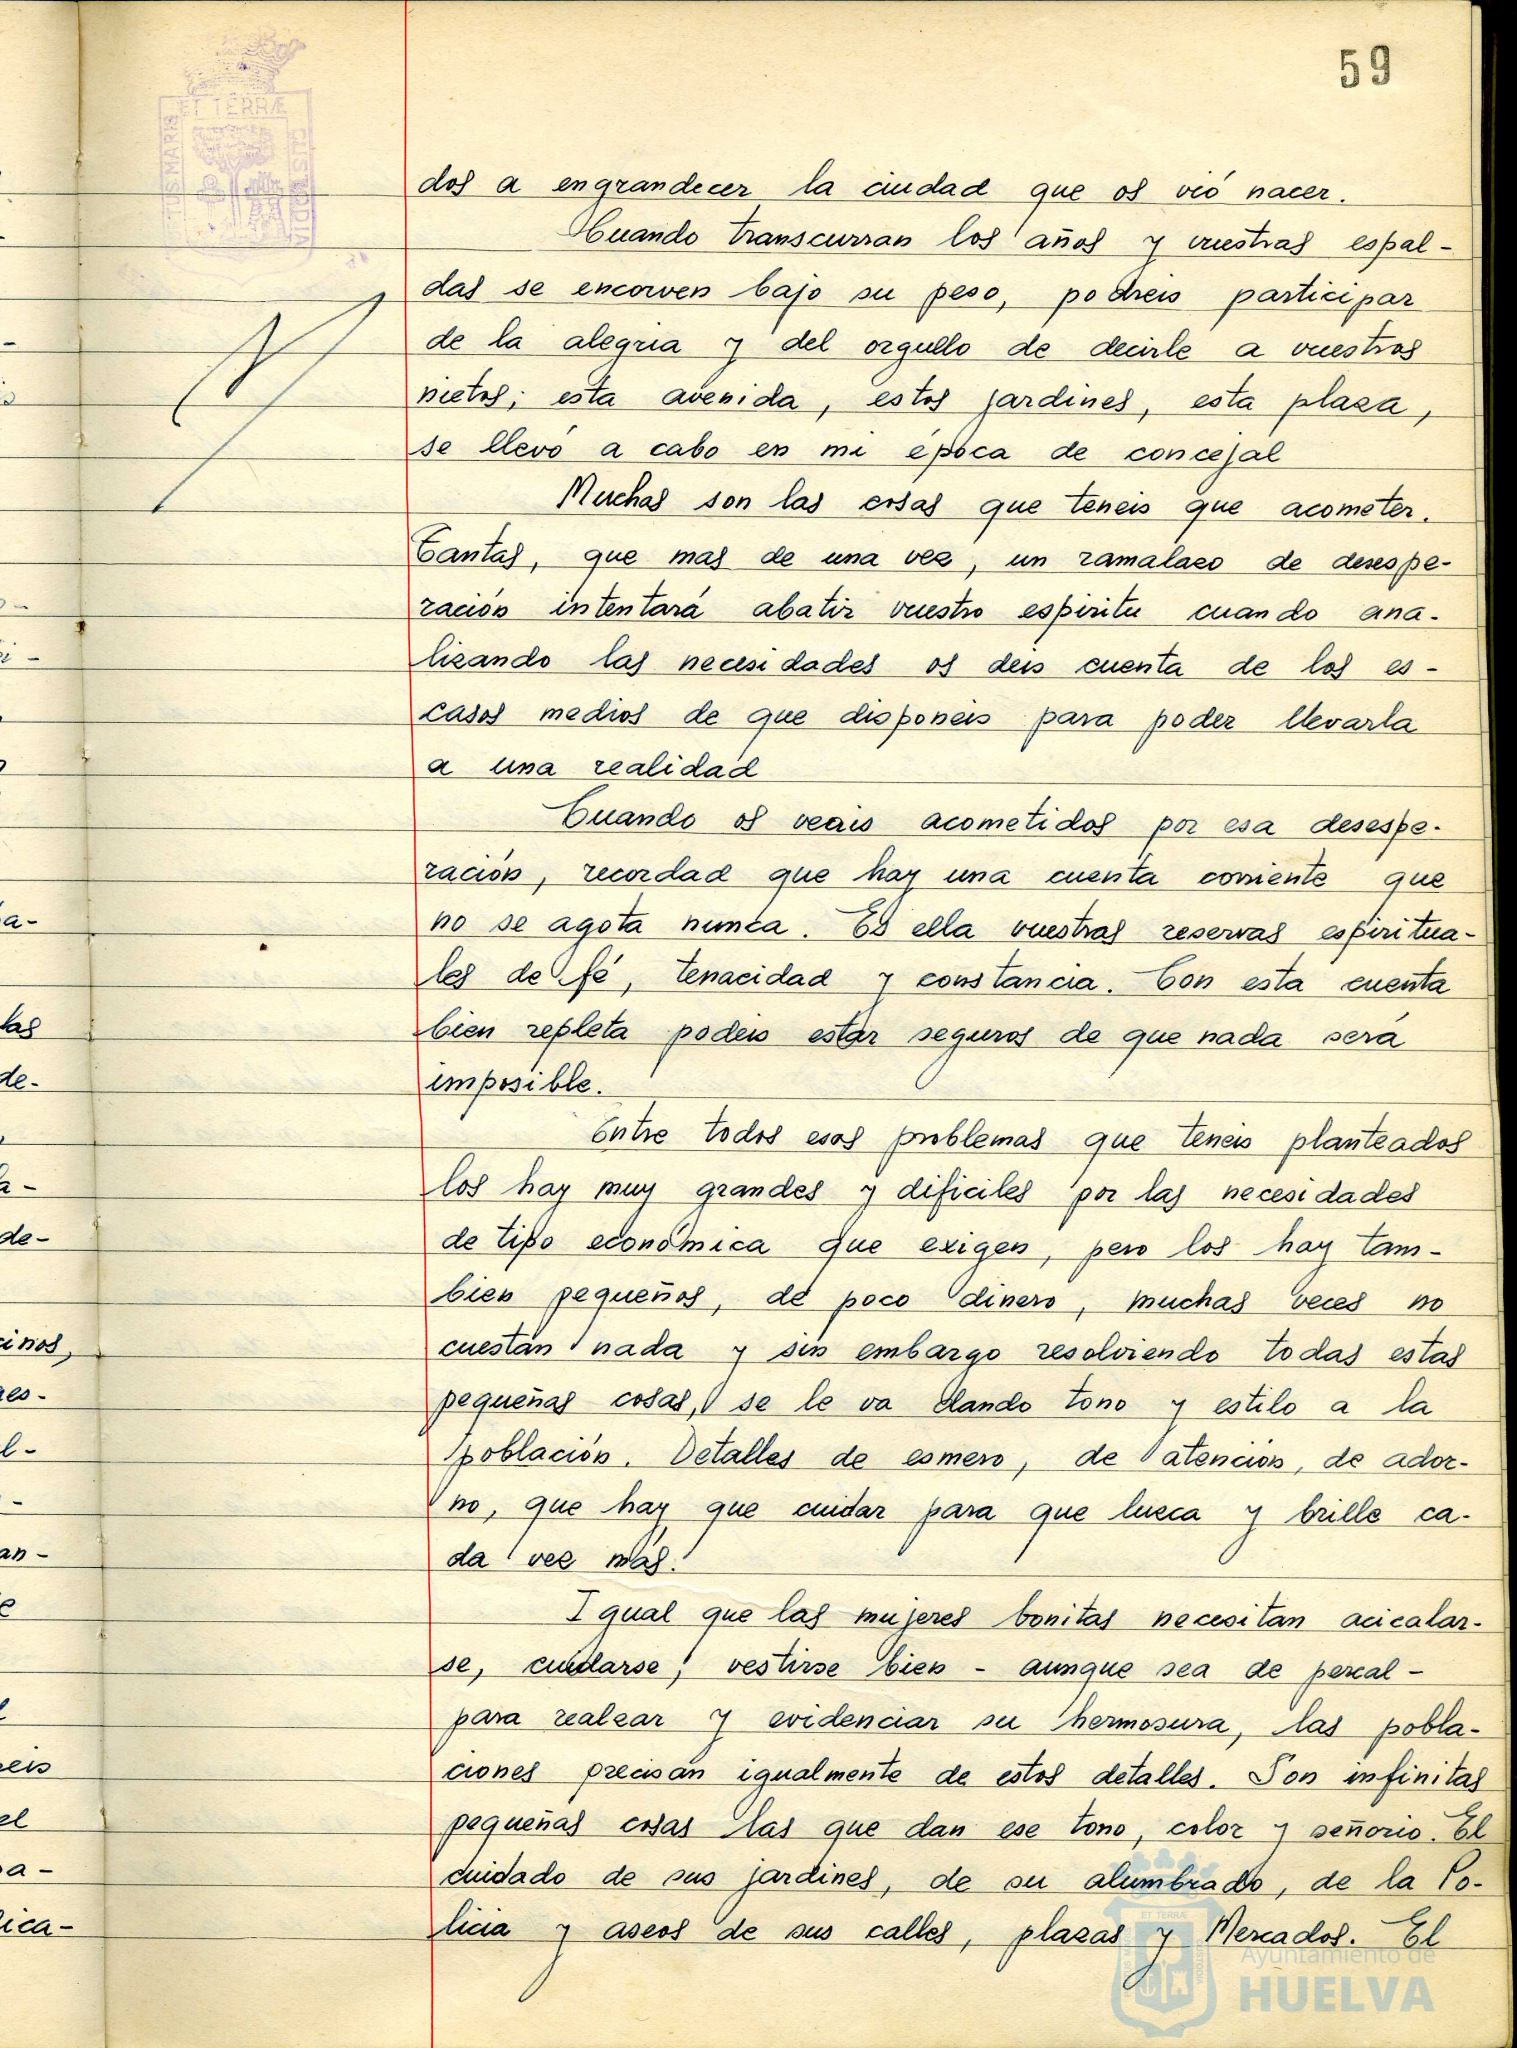 59
ET TERRÆ
PORTUS MARIS
CUSTODIA
dos a engrandecer la ciudad que os vió nacer.
Cuando transcurran los años y vuestras espal-
das se encorven bajo su peso, podreis participar
de la alegria y del orgullo de decirle a vuestros
nietos; esta avenida, estos jardines, esta plaza,
se llevó a cabo en mi época de concejal
Muchas son las cosas que teneis que acometer.
Tantas, que mas de una vez, un ramalazo de desespe-
ración intentará abatir vuestro espiritu cuando ana-
lizando las necesidades os deis cuenta de los es-
casos medios de que disponeis para poder llevarla
a una realidad
Cuando os veais acometidos por esa desespe-
ración, recordad que hay una cuenta corriente que
no se agota nunca. Es ella vuestras reservas espiritua-
les de fé, tenacidad y constancia. Con esta cuenta
bien repleta podeis estar seguros de que nada será
imposible.
Entre todos esos problemas que teneis planteados
los hay muy grandes y dificiles por las necesidades
de tipo económica que exigen, pero los hay tam-
bien pequeños, de poco dinero, muchas veces no
cuestan nada y sin embargo resolviendo todas estas
pequeñas cosas, se le va dando tono y estilo a la
población. Detalles de esmero, de atención, de ador-
no, que hay que cuidar para que luzca y brille ca-
da vez más.
Igual que las mujeres bonitas necesitan acicalar-
se, cuidarse, vestirse bien - aunque sea de percal -
para realzar y evidenciar su hermosura, las pobla-
ciones precisan igualmente de estos detalles. Son infinitas
pequeñas cosas las que dan ese tono, color y señorio. El
cuidado de sus jardines, de su alumbrado, de la Po-
licia y aseos de sus calles, plazas y Mercados. El
Ayuntamiento de
HUELVA